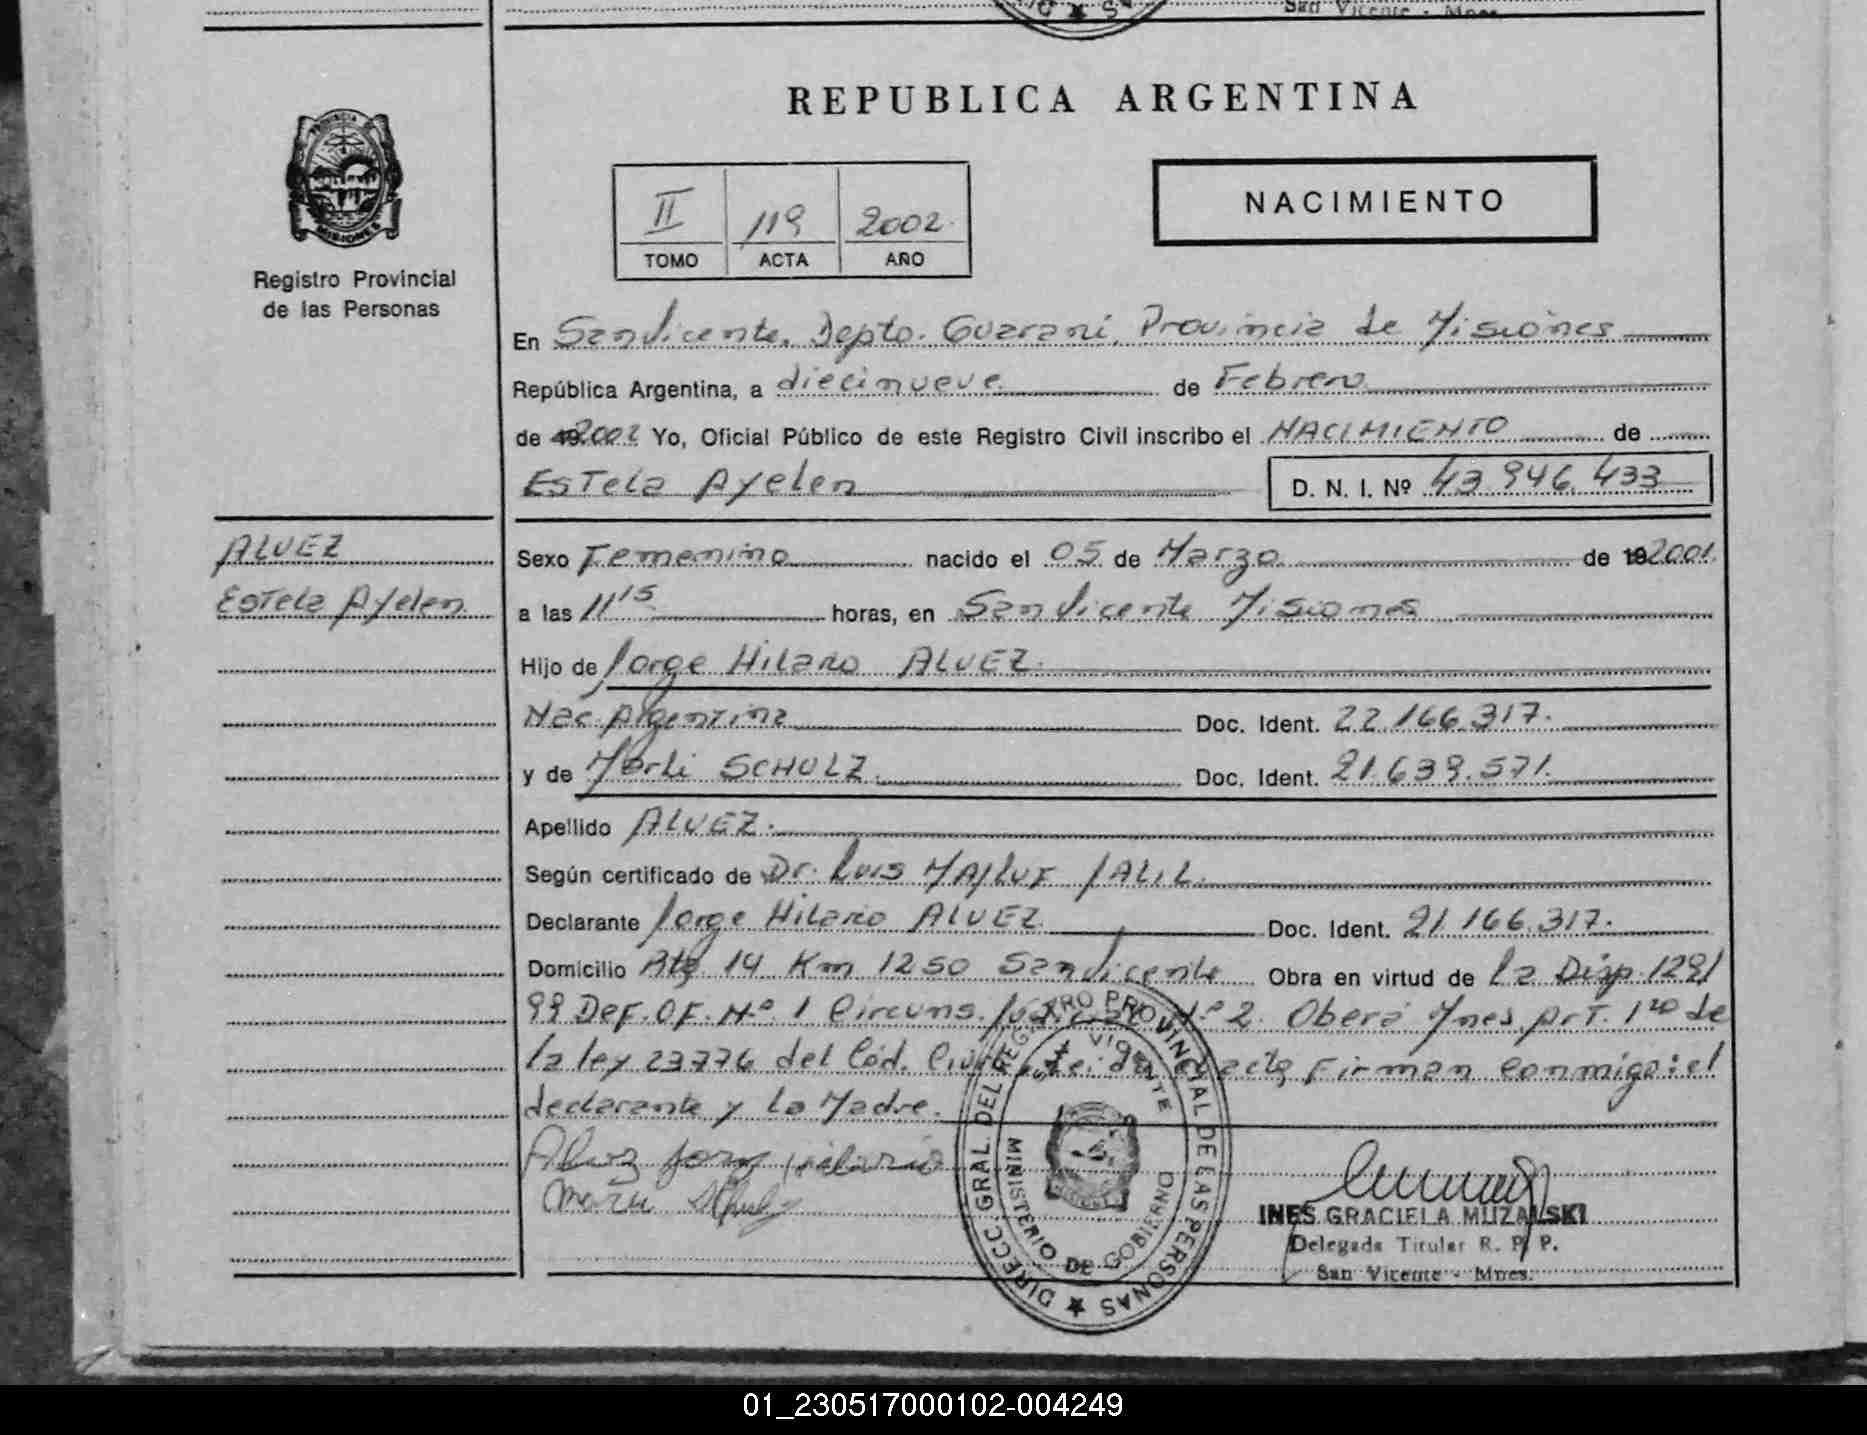 San Vicente - Mnes.
REPUBLICA ARGENTINA
PROVINCIA DE
MISIONES
Registro Provincial
de las Personas
II 119 2002.
TOMO ACTA AÑO
NACIMIENTO
En San Vicente, Depto. Guarani, Provincia de Misiones
República Argentina, a diecinueve de Febrero
de 19 2002 Yo, Oficial Público de este Registro Civil inscribo el NACIMIENTO de
Estela Ayelen D. N. I. Nº 43.946.433
ALVEZ
Estela Ayelen
Sexo Femenino nacido el 05 de Marzo de 19 2001.
a las 11 15 horas, en San Vicente Misiones
Hijo de Jorge Hilario ALVEZ.
Nac. Argentina Doc. Ident. 22.166.317.
y de Marli SCHULZ. Doc. Ident. 21.639.571.
Apellido ALVEZ.
Según certificado de Dr. Luis MAJLUF JALIL.
Declarante Jorge Hilario ALVEZ Doc. Ident. 21.166.317.
Domicilio Rta 14 Km 1250 San Vicente Obra en virtud de la Disp. 1291
99 Def. OF. Nº 1 Circuns. Judicial Nº 2. Obera Mnes. Art. 1ro de
la ley 23776 del Cód. Civil. Leida el acta Firman conmigo: el
declarante y la Madre.
Alvez Jorge Hilario
Schulz
DIRECC. GRAL. DEL REGISTRO PROVINCIAL DE LAS PERSONAS
MINISTERIO DE GOBIERNO
S. VICENTE
INES GRACIELA MUZALSKI
Delegada Titular R. P. P.
San Vicente - Mnes.
01_230517000102-004249